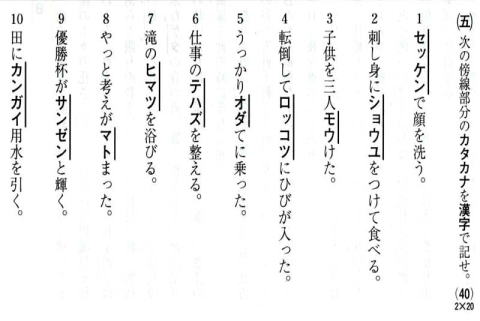 ㈤ 次の傍線部分のカタカナを漢字で記せ。 (40) 2×20
1 セッケンで顔を洗う。
2 刺し身にショウユをつけて食べる。
3 子供を三人モウけた。
4 転倒してロッコツにひびが入った。
5 うっかりオダてに乗った。
6 仕事のテハズを整える。
7 滝のヒマツを浴びる。
8 やっと考えがマトまった。
9 優勝杯がサンゼンと輝く。
10 田にカンガイ用水を引く。